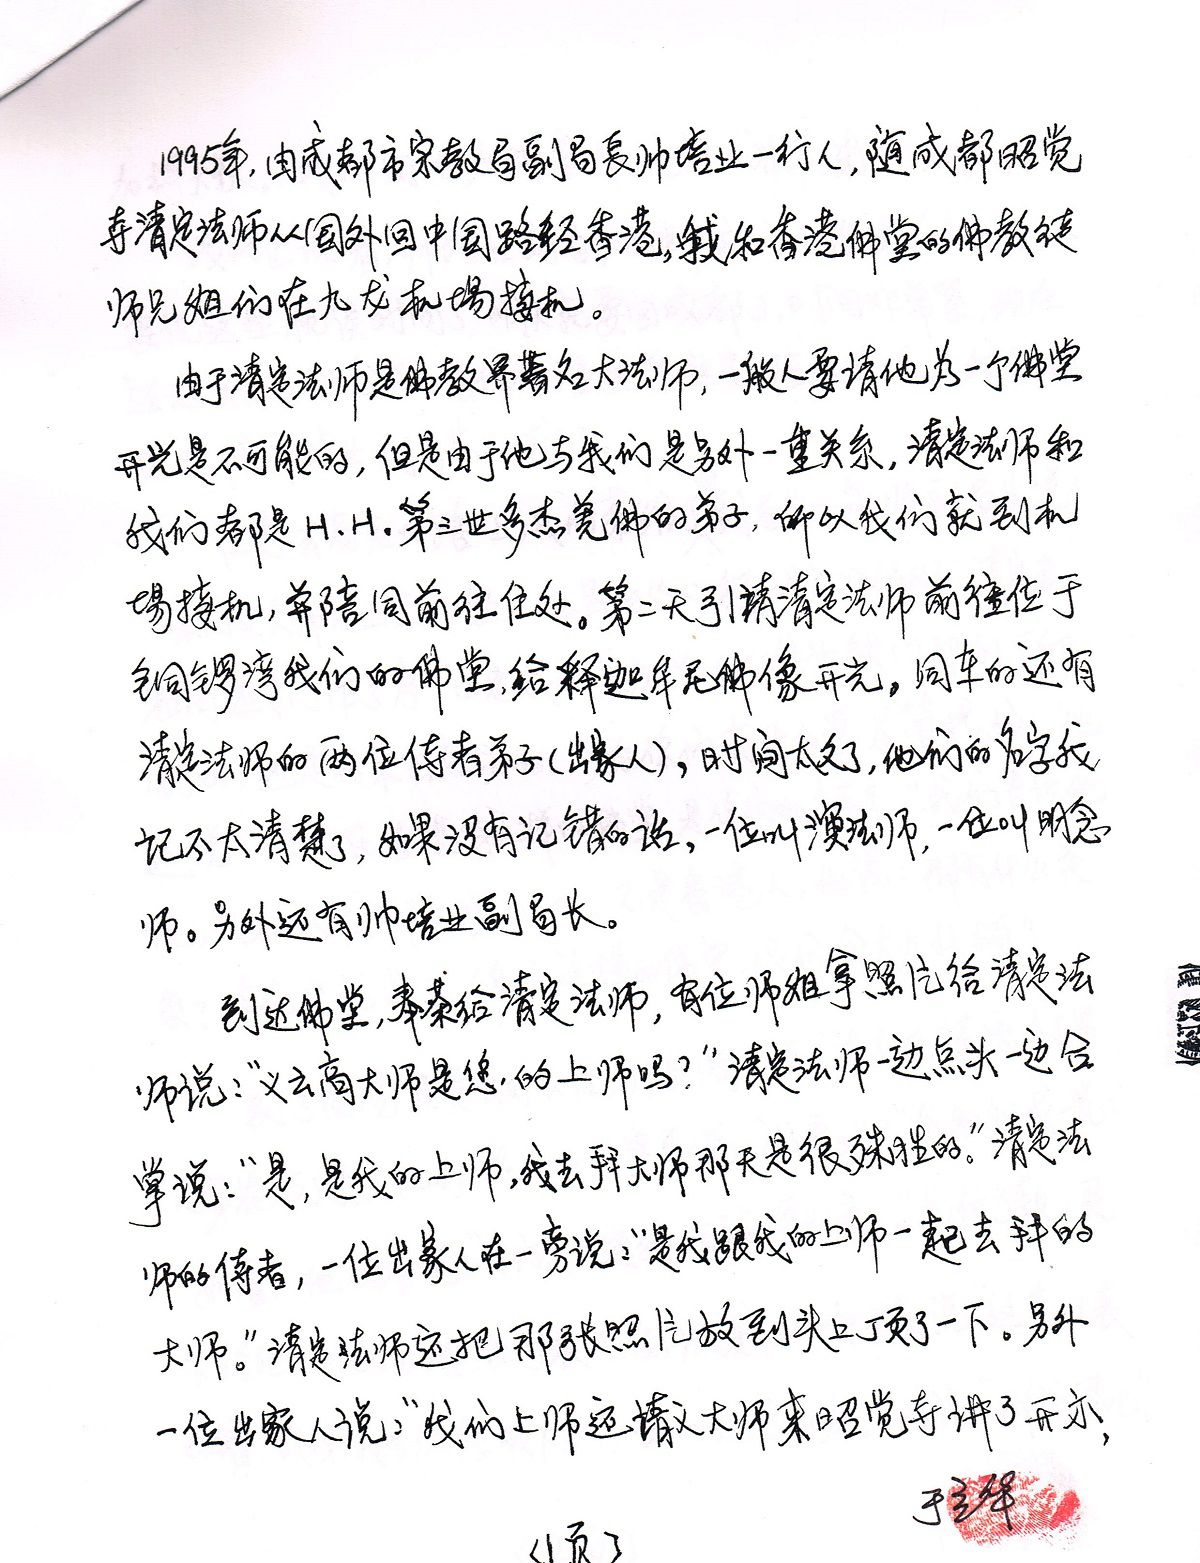 1995年,由成都市宗教局副局長帅培业一行人,随成都昭觉
寺清定法师从国外回中国路经香港,我和香港佛堂的佛教徒
师兄姐们在九龙机場接机。
由于清定法师是佛教界著名大法师,一般人要请他为一个佛堂
开光是不可能的,但是由于他与我们是另外一重关系,清定法师和
我们都是H.H.第三世多杰羌佛的弟子,所以我们就到机
場接机,并陪同前往住处。第二天引请清定法师前往位于
铜锣湾我们的佛堂,给释迦牟尼佛像开光。同车的还有
清定法师的两位侍者弟子(出家人),时间太久了,他们的名字我
记不太清楚了,如果没有记错的话,一位叫演法师,一位叫明念
师。另外还有帅培业副局长。
到达佛堂,奉茶给清定法师,有位师姐拿照片给清定法
师说:“义云高大师是您的上师吗?”清定法师一边点头一边合
掌说:“是,是我的上师,我去拜大师那天是很殊胜的。”清定法
师的侍者,一位出家人在一旁说:“是我跟我的上师一起去拜的
大师。”清定法师还把那张照片放到头上顶了一下。另外
一位出家人说:“我们上师还请义大师来昭觉寺讲了开示,
于立华
(1页)